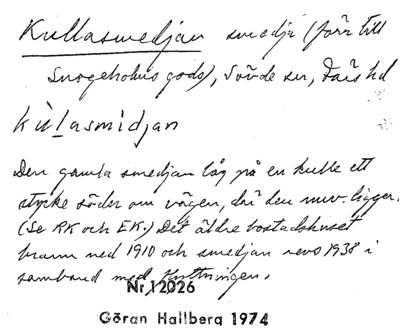 Kullasmedjan smedja (förr till
Snogeholms gods), Sövde sn, Färs hd
kùlasmìdjan
Den gamla smedjan låg på en kulle ett
stycke söder om vägen, där den nuv. ligger.
(Se RK och EK.) Det äldre bostadshuset
brann ned 1910 och smedjan revs 1938 i
samband med flyttningen.
Nr 12026
Göran Hallberg 1974